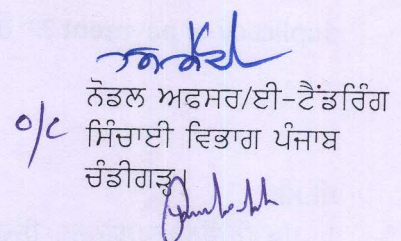 ਨੋਡਲ ਅਫਸਰ/ਈ-ਟੈਂਡਰਿੰਗ
o/c ਸਿੰਚਾਈ ਵਿਭਾਗ ਪੰਜਾਬ
ਚੰਡੀਗੜ੍ਹ।